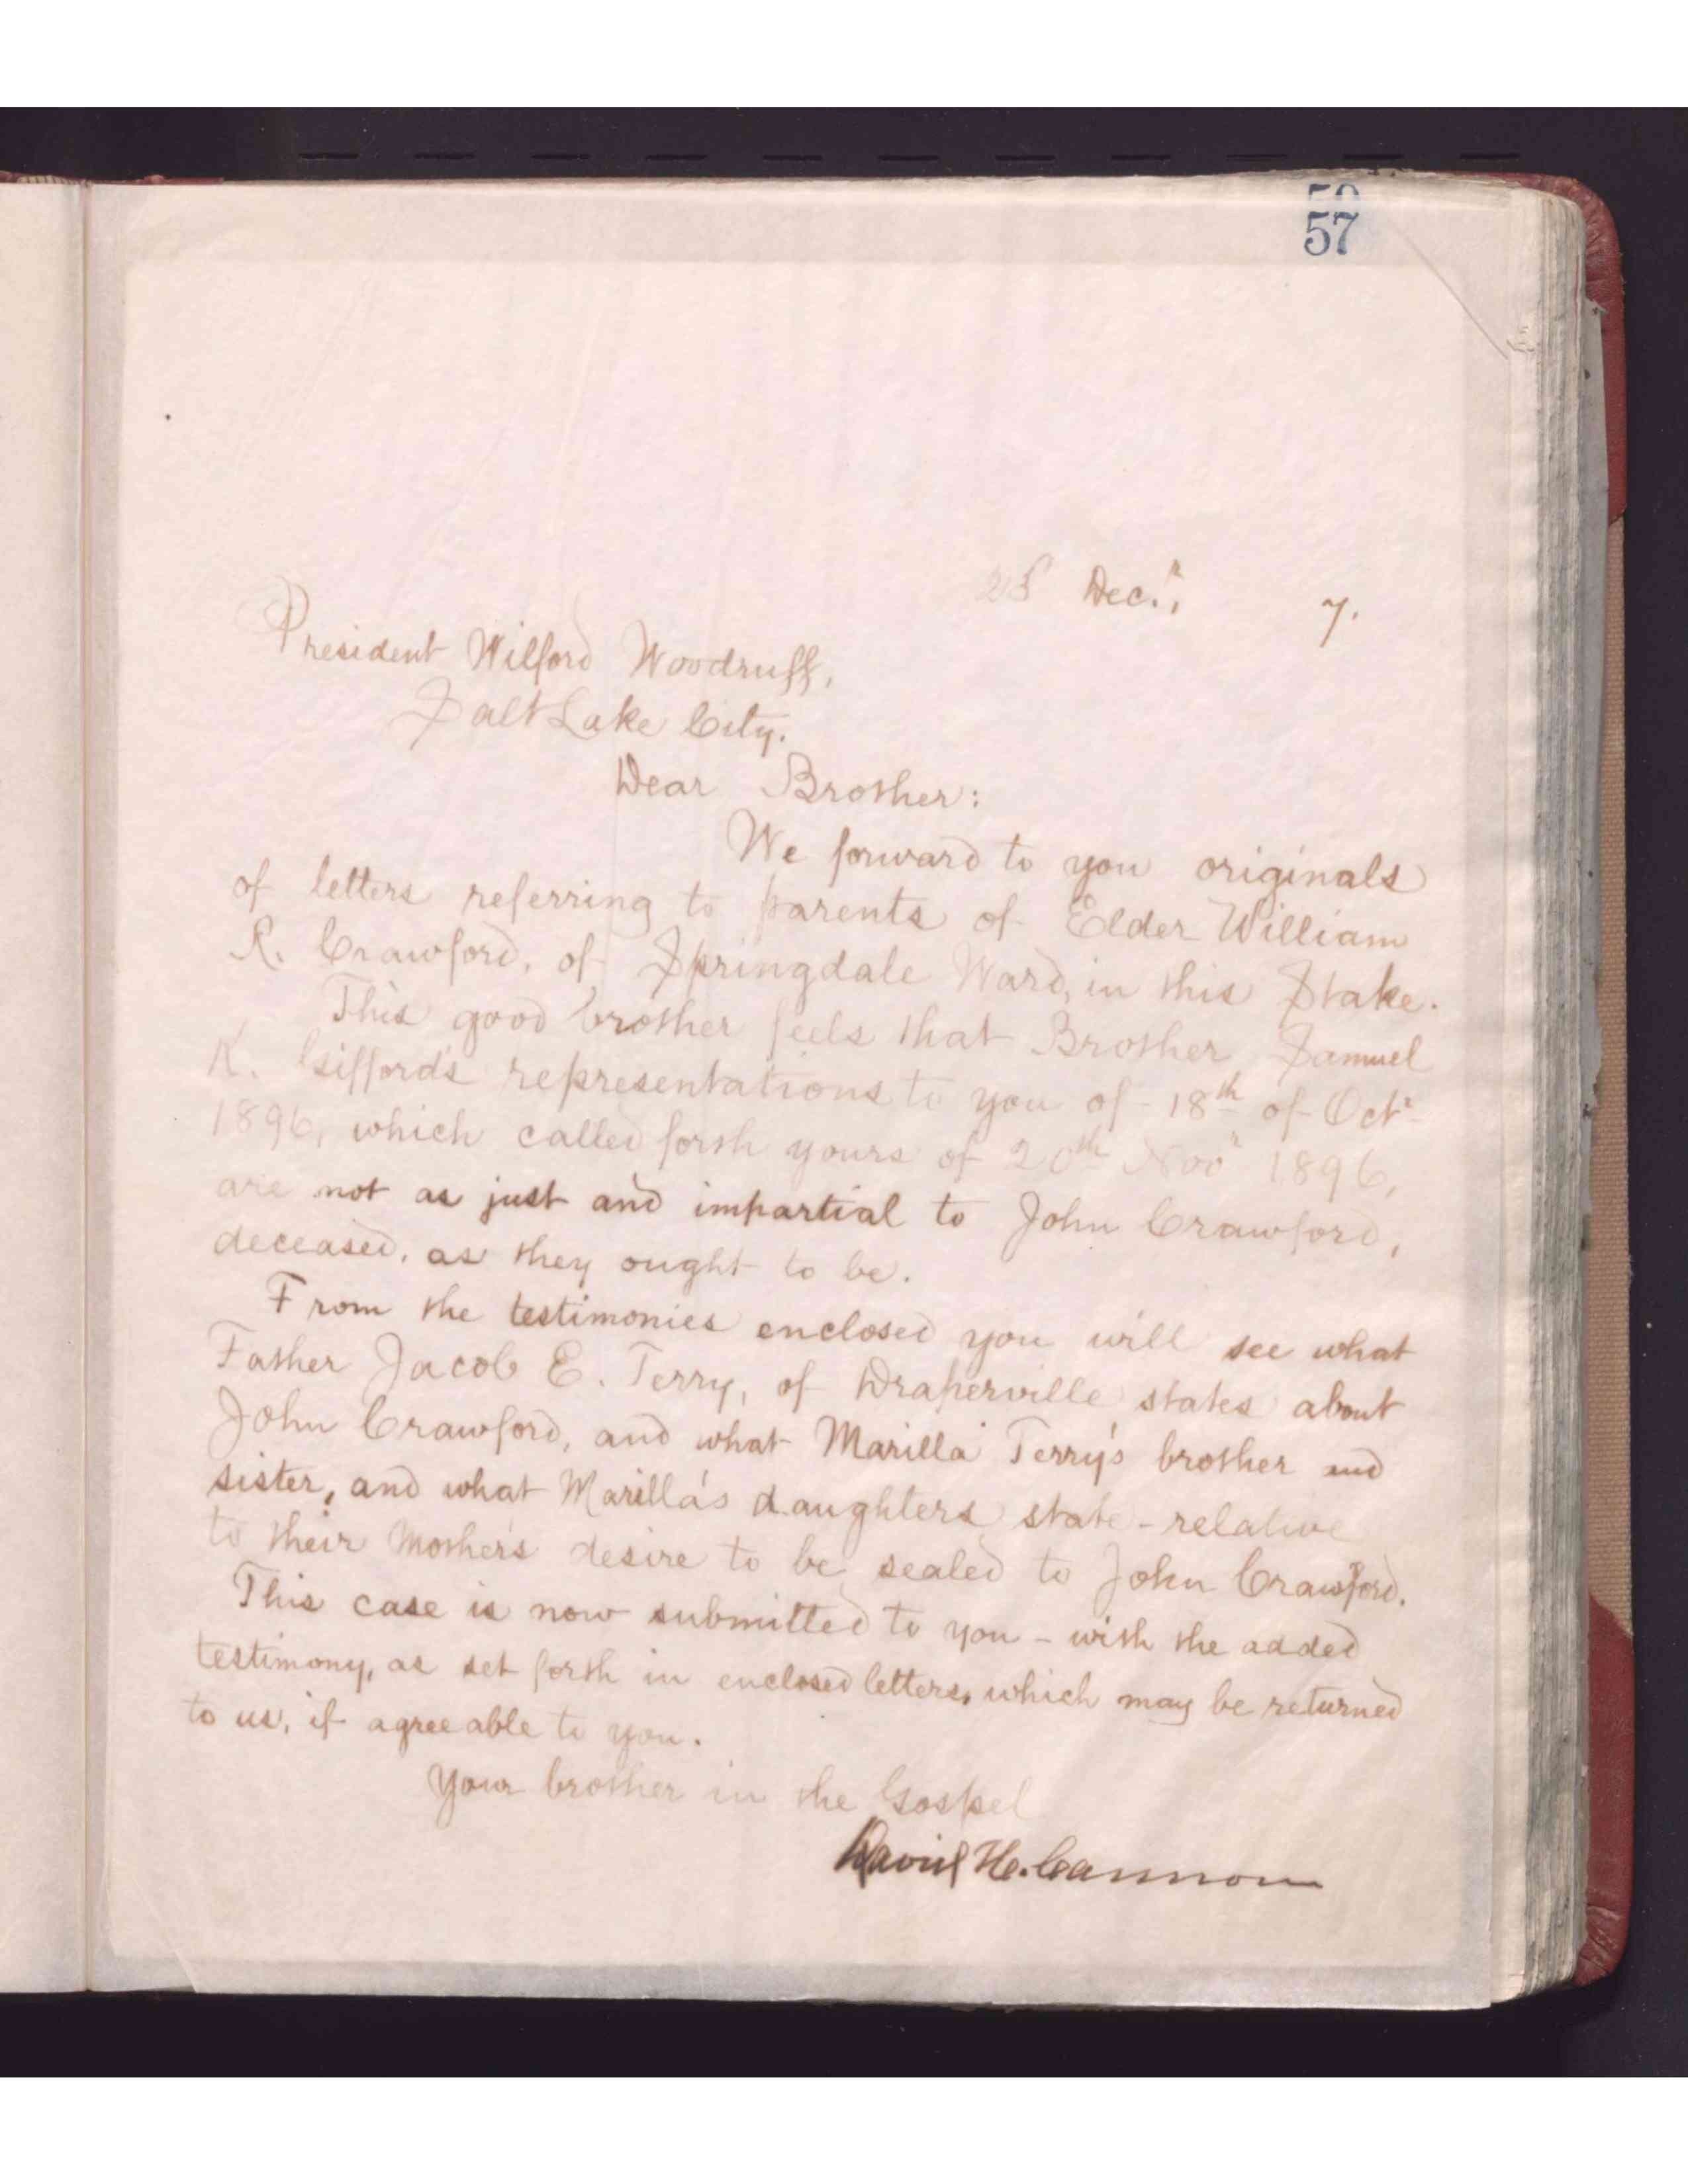 57
28 Dec.r, 7.
President Wilford Woodruff,
Salt Lake City.
Dear Brother:
We forward to you originals
of letters referring to parents of Elder William
R. Crawford, of Springdale Ward, in this Stake.
This good brother feels that Brother Samuel
K. Gifford's representations to you of 18th of Octr
1896, which called forth yours of 20th Novr 1896,
are not as just and impartial to John Crawford,
deceased, as they ought to be.
From the testimonies enclosed you will see what
Father Jacob E. Terry, of Draperville states about
John Crawford, and what Marilla Terry's brother and
sister, and what Marilla's daughters state - relative
to their Mother's desire to be sealed to John Crawford.
This case is now submitted to you - with the added
testimony, as set forth in enclosed letters, which may be returned
to us, if agreeable to you.
Your brother in the Gospel
David H. Cannon